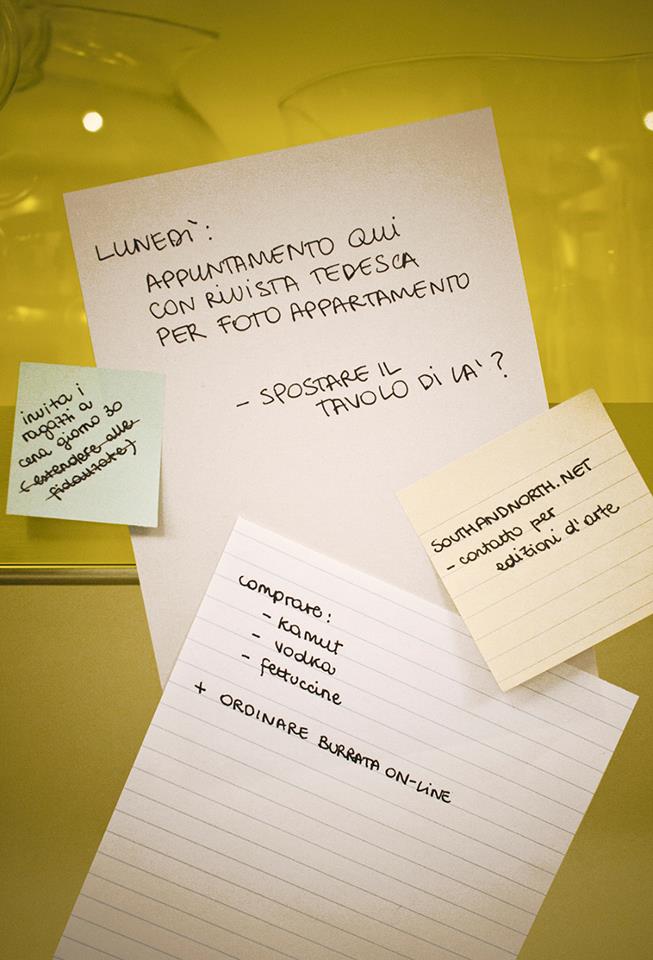 LUNEDÌ:
APPUNTAMENTO QUI
CON RIVISTA TEDESCA
PER FOTO APPARTAMENTO
- SPOSTARE IL
TAVOLO DI LA' ?
invita i
ragazzi a
cena giorno 30
(estendere alle
fidanzate)
SOUTHANDNORTH.NET
- contatto per
edizioni d'arte
comprare:
- kamut
- vodka
- fettuccine
+ ORDINARE BURRATA ON-LINE